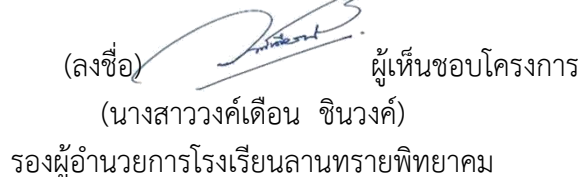 (ลงชื่อ) ผู้เห็นชอบโครงการ
(นางสาววงค์เดือน ชินวงค์)
รองผู้อำนวยการโรงเรียนลานทรายพิทยาคม